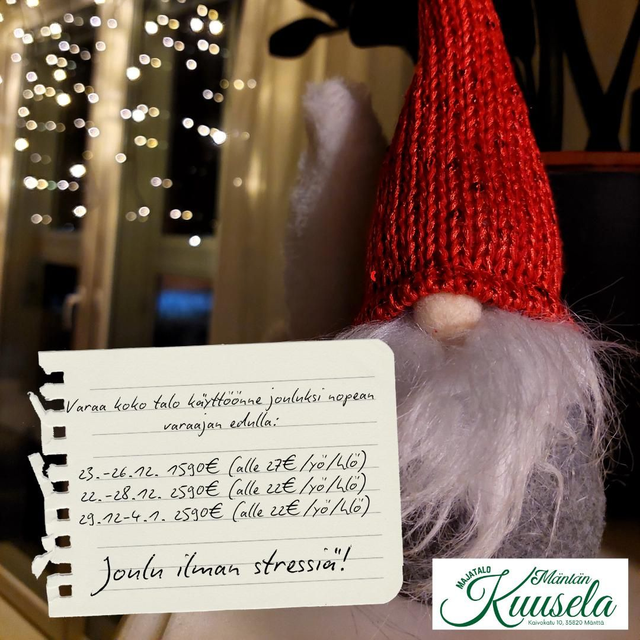 Varaa koko talo käyttöönne jouluksi nopean
varaajan edulla:
23.-26.12. 1590€ (alle 27€/yö/hlö)
22.-28.12. 2590€ (alle 22€/yö/hlö)
29.12-4.1. 2590€ (alle 22€/yö/hlö)
Joulu ilman stressiä!
MAJATALO
Mäntän
Kuusela
Kaivokatu 10, 35820 Mänttä